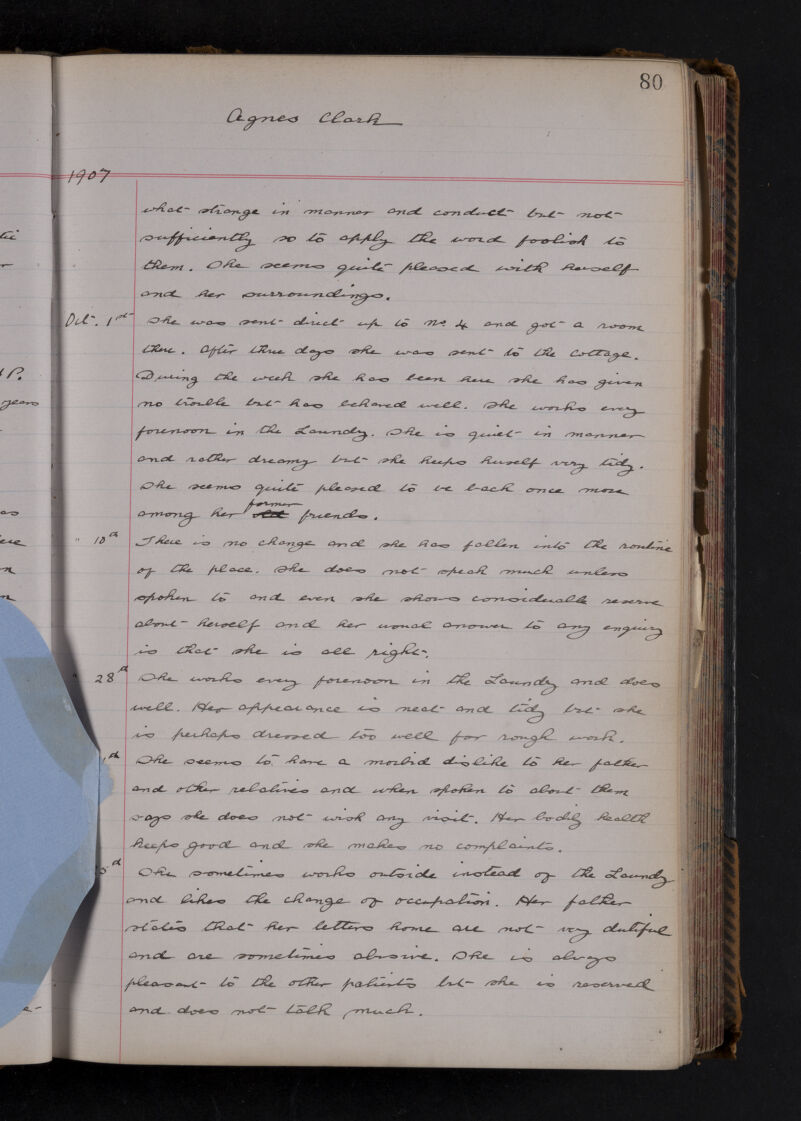 80
Agnes Clark
1907
what strange in manner and conduct but not
sufficiently so to apply the word foolish to
them. She seems quite pleased with herself
and her surroundings.
Oct. 1st She was sent direct up to No 4 and got a room
there. After three days she was sent to the Cottage.
During the week she has been here she has given
no trouble but has behaved well. She works every
forenoon in the Laundry. She is quiet in manner
and rather dreamy but she keeps herself very tidy.
She seems quite pleased to be back once more
among her old former friends.
" 10th There is no change and she has fallen into the routine
of the place. She does not speak much unless
spoken to and even she shows considerable reserve
about herself and her usual answer to any enquiry
is that she is all right.
" 28th She works every forenoon in the Laundry and does
well. Her appearance is neat and tidy but she
is perhaps dressed too well for rough work.
She seems to have a morbid dislike to her father
and other relatives and when spoken to about them
says she does not wish any visit. Her bodily health
keeps good and she makes no complaints.
She sometimes works outside instead of the Laundry
and likes the change of occupation. Her father
states that her letters home are not very dutiful
and are sometimes abusive. She is always
pleasant to the other patients but she is reserved
and does not talk much.